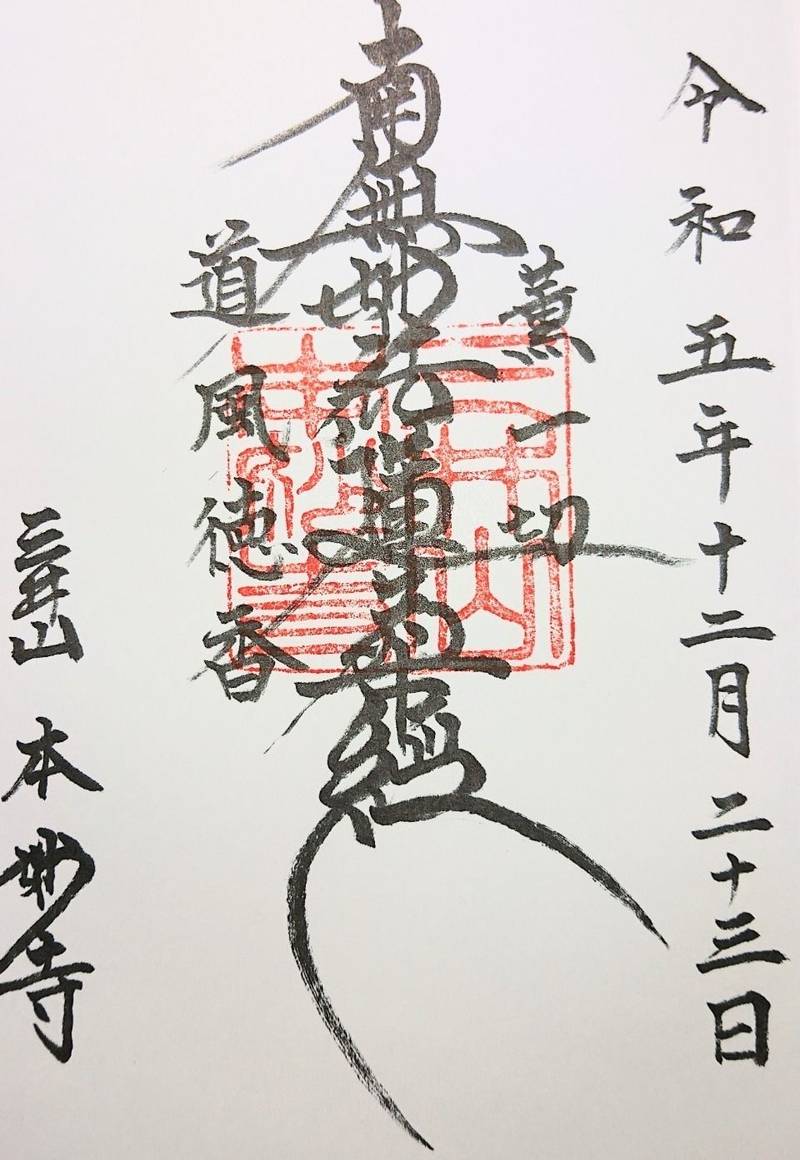 令和五年十二月二十三日
薫一切
南無妙法蓮華経
道風徳香
三井山 本妙寺